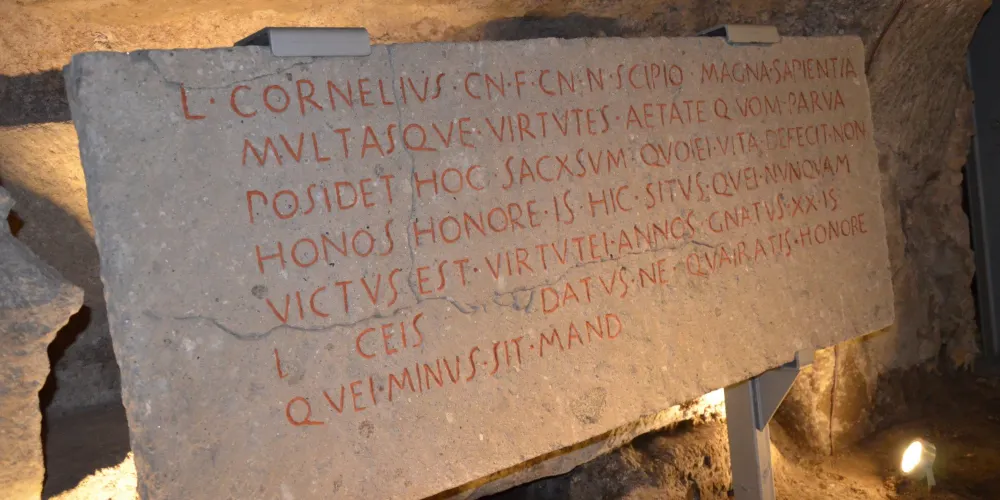 L·CORNELIVS·CN·F·CN·N·SCIPIO·MAGNA·SAPIENTIA
MVLTASQVE·VIRTVTES·AETATE·QVOM·PARVA
POSIDET HOC SACXSVM·QVOIEI·VITA·DEFECIT·NON
HONOS HONORE·IS·HIC·SITVS·QVEI·NVNQVAM
VICTVS EST·VIRTVTEI·ANNOS·GNATVS·XX·IS
L CEIS DATVS·NE QVAIRATIS·HONORE
QVEI·MINVS·SIT·MAND